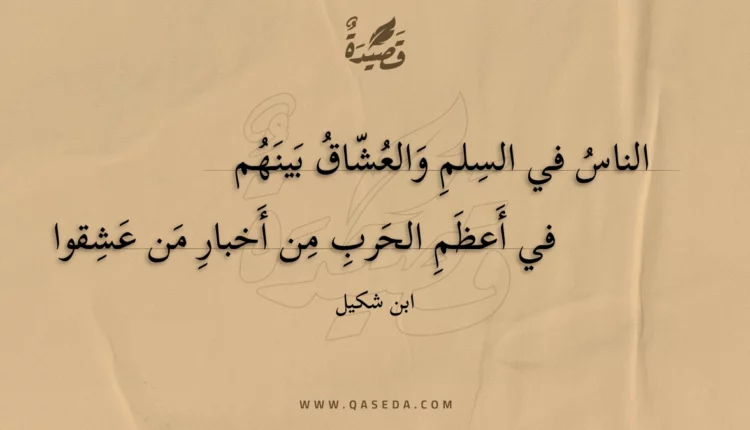 قَصِيدَةٌ
الناسُ في السِلمِ وَالعُشّاقُ بَينَهُم
في أَعظَمِ الحَربِ مِن أَخبارِ مَن عَشِقوا
ابن شكيل
WWW.QASEDA.COM